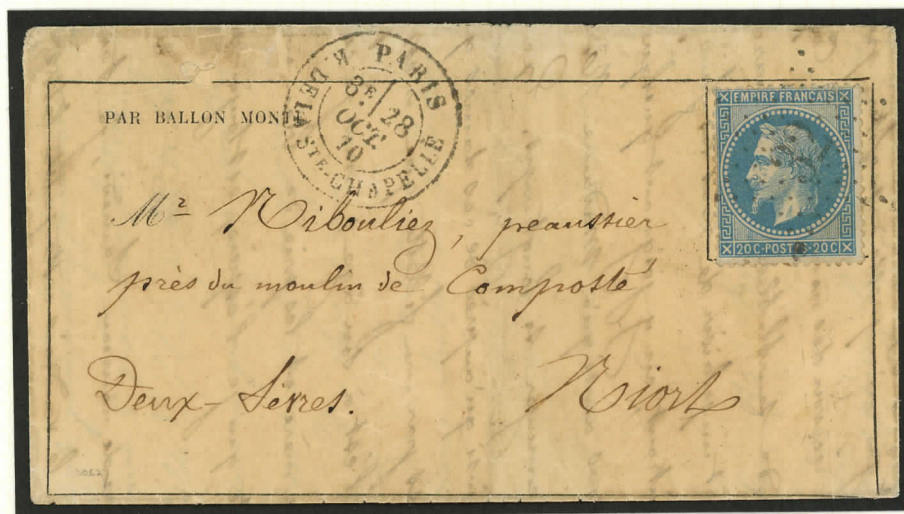 PAR BALLON MONTÉ
PARIS
R. DE LA STE-CHAPELLE
3E
28
OCT.
70
EMPIRE FRANÇAIS
20C-POSTES-20C
Mr Ribouliez, peaussier
près du moulin de Comporté
Deux-Sèvres. Niort